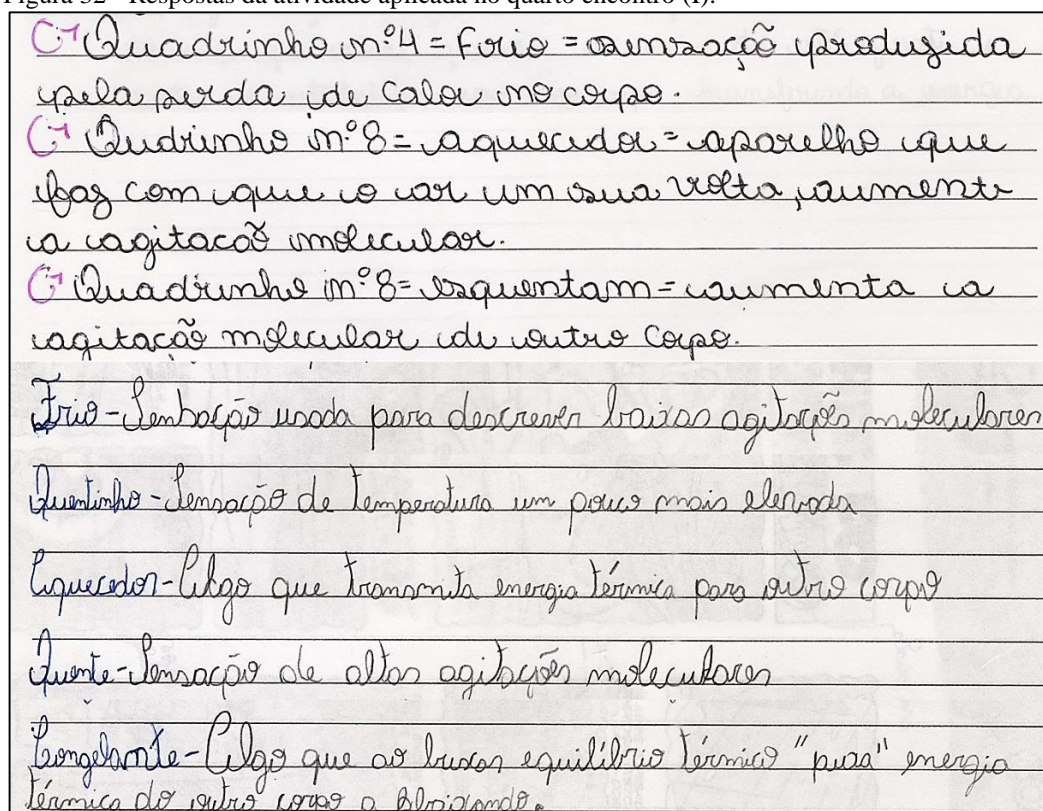 Figura 32 - Respostas da atividade aplicada no quarto encontro (I).
Quadrinho nº 4 = Frio = sensação produzida
pela perda de calor no corpo.
Qudrinho nº 8 = aquecedor = aparelho que
faz com que o ar um sua volta, aumente
a agitacaõ molecular.
Quadrinho nº 8 = esquentam = aumenta a
agitacão molecular de outro corpo.
Frio - Sensação usada para descrever baixas agitações moleculares
Quentinho - Sensação de temperatura um pouco mais elevada
Aquecedor - Algo que transmita energia térmica para outro corpo
Quente - Sensação de altas agitações moleculares
Congelante - Algo que ao buscar equilíbrio térmico "puxa" energia
térmica do outro corpo o